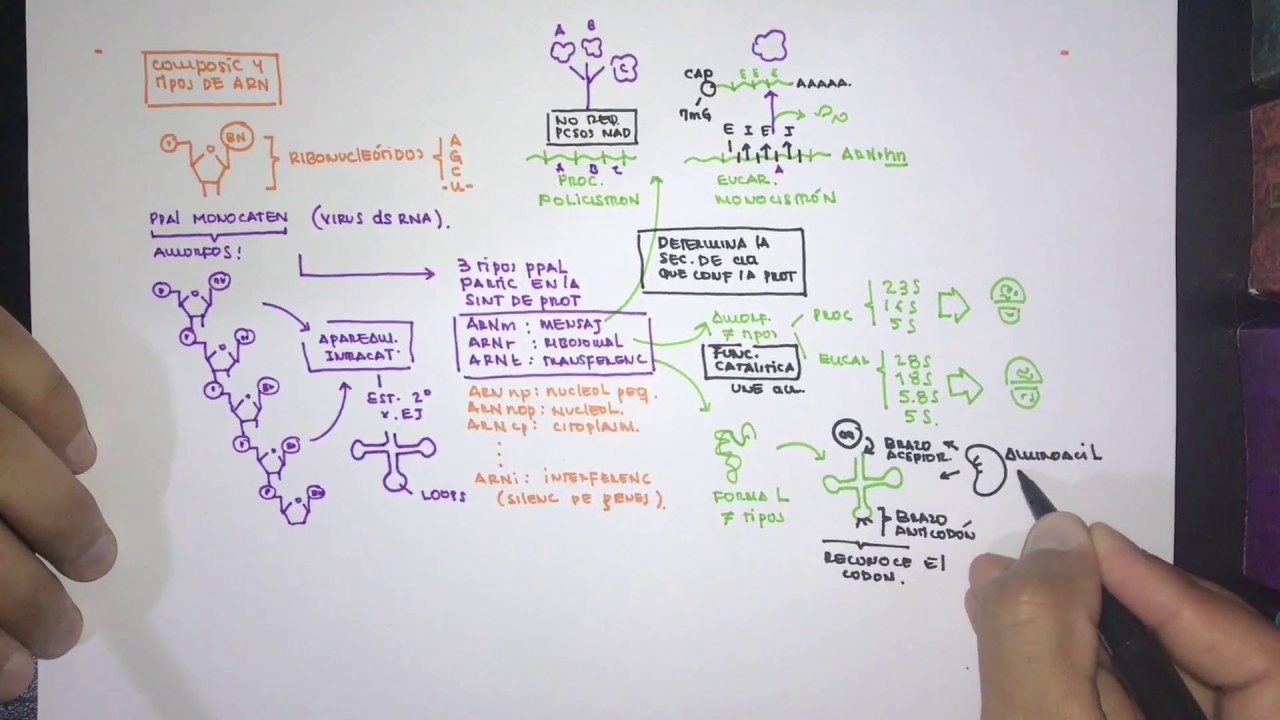 COMPOSIC Y
TIPOS DE ARN
P
BN
RIBONUCLEÓTIDOS
A
G
C
-U-
PPAL MONOCATEN (VIRUS dS RNA).
AMORFOS!
APAREAM.
INTRACAT.
EST. 2º
X. EJ
LOOPS
3 TIPOS PPAL
PARTIC EN LA
SINT DE PROT
ARNm : MENSAJ
ARNr : RIBOSOMAL
ARNt : TRANSFERENC
ARN np : NUCLEOL PEQ.
ARN nop : NUCLEOL.
ARN cp : CITOPLASM.
ARNi : INTERFERENC
(SILENC DE GENES).
A
B
C
NO REQ.
PCSOS MAD
A B C
PROC.
POLICISTRON
CAP
7mG
E E E
AAAAA.
E I E I
A
ARNhn
EUCAR.
MONOCISTRÓN
DETERMINA LA
SEC. DE aa
QUE CONF LA PROT
AMORF.
≠ TIPOS
FUNC.
CATALITICA
UNE aa.
PROC
23S
16S
5S
EUCAR
28S
18S
5.8S
5S.
FORMA L
≠ TIPOS
aa
BRAZO
ACEPTOR.
AMINOACIL
BRAZO
ANTICODÓN
RECONOCE EL
CODON.